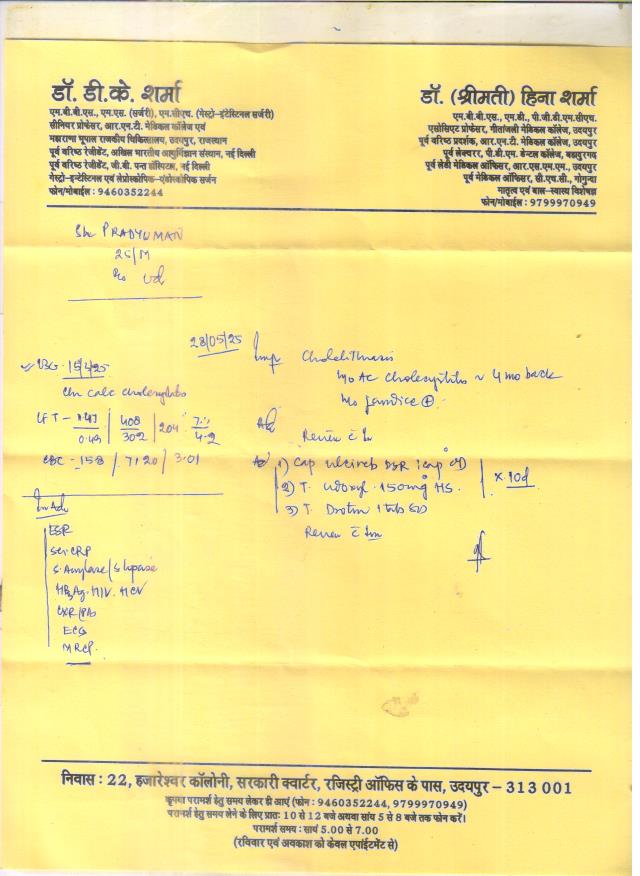 डॉ. डी.के. शर्मा
एम.बी.बी.एस., एम.एस. (सर्जरी), एम.सीएच. (गेस्ट्रो-इंटेस्टिनल सर्जरी)
सीनियर प्रोफेसर, आर.एन.टी. मेडिकल कॉलेज एवं
महाराणा भूपाल राजकीय चिकित्सालय, उदयपुर, राजस्थान
पूर्व वरिष्ठ रेजीडेंट, अखिल भारतीय आयुर्विज्ञान संस्थान, नई दिल्ली
पूर्व वरिष्ठ रेजीडेंट, जी.बी. पन्त हॉस्पिटल, नई दिल्ली
गेस्ट्रो-इन्टेस्टिनल एवं लेप्रोस्कोपिक-एंडोस्कोपिक सर्जन
फोन/मोबाईल : 9460352244
डॉ. (श्रीमती) हिना शर्मा
एम.बी.बी.एस., एम.डी., पी.जी.डी.एम.सीएच.
एसोसिएट प्रोफेसर, गीतांजली मेडिकल कॉलेज, उदयपुर
पूर्व वरिष्ठ प्रदर्शक, आर.एन.टी. मेडिकल कॉलेज, उदयपुर
पूर्व लेक्चरर, पी.डी.एम. डेन्टल कॉलेज, बहादुरगढ़
पूर्व लेडी मेडिकल ऑफिसर, आर.एस.एम.एम., उदयपुर
पूर्व मेडिकल ऑफिसर, सी.एच.सी., गोगुन्दा
मातृत्व एवं बाल-स्वास्थ्य विशेषज्ञ
फोन/मोबाईल : 9799970949
PRADYUMAN
25/M
Ud
28/05/25
USG - 15/4/25
Chr calc cholecystitis
LFT - 1.47/0.49 | 408/302 | 204 | 7.1/4.2
CBC - 15.8 / 7120 / 3.01
Imp Cholelithiasis
H/o AC cholecystitis ~ 4 mo back
H/o Jaundice ⊕
Adv
Review c̄ Inv
Adv 1) Cap DSR 1 cap OD
2) T. Udoxyl 150mg HS.
3) T. Drotin 1 tab SOS
x 10d
Review c̄ Inv
Inv Adv
ESR
Ser CRP
S. Amylase / S lipase
HBsAg. HIV. HCV
CXR/PA
ECG
MRCP
निवास : 22, हजारेश्वर कॉलोनी, सरकारी क्वार्टर, रजिस्ट्री ऑफिस के पास, उदयपुर – 313 001
कृपया परामर्श हेतु समय लेकर ही आएं (फोन : 9460352244, 9799970949)
परामर्श हेतु समय लेने के लिए प्रातः 10 से 12 बजे अथवा सायं 5 से 8 बजे तक फोन करें।
परामर्श समय : सायं 5.00 से 7.00
(रविवार एवं अवकाश को केवल एपाईंटमेंट से)